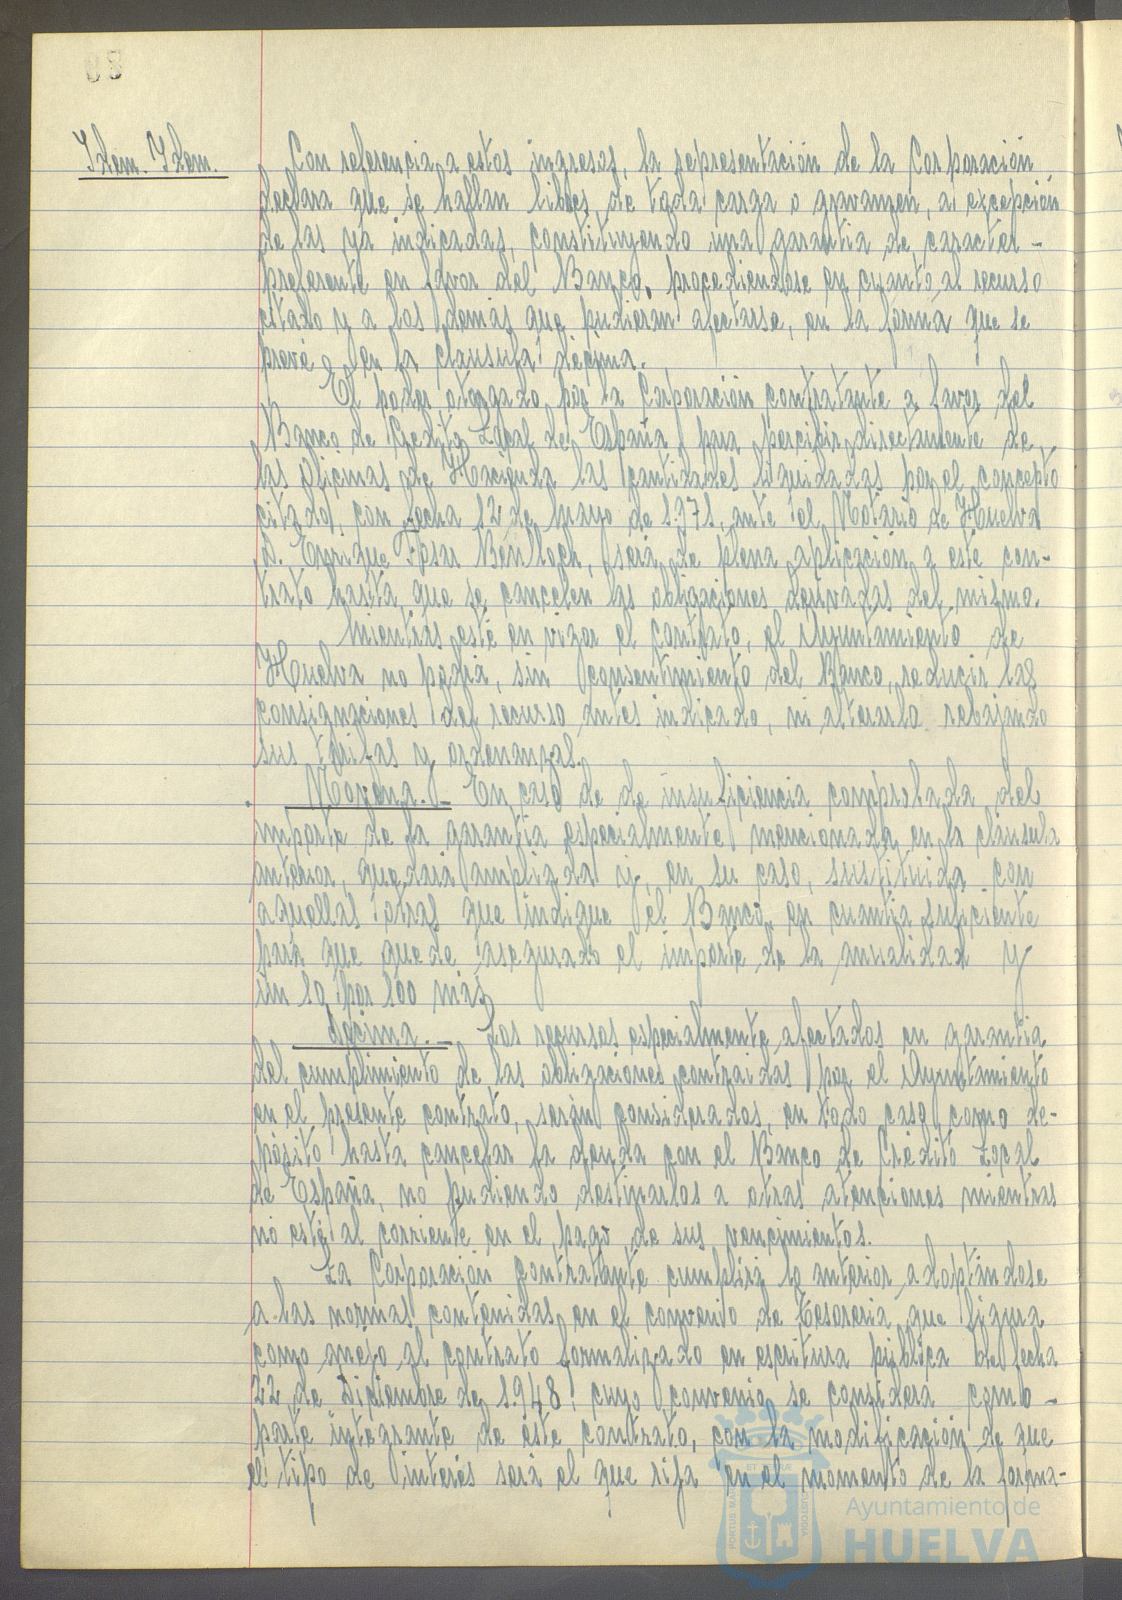 Idem. Idem.
Con referencia a estos ingresos, la representación de la Corporación
declara que se hallan libres de toda carga o gravamen, a excepción
de las ya indicadas, constituyendo una garantía de caracter -
preferente en favor del Banco, procediendose en cuanto al recurso
citado y a los demás que pudieran afectarse, en la forma que se
prevé en la clausula décima.
El poder otorgado por la Corporación contratante a favor del
Banco de Credito Local de España, para percibir directamente de
las Oficinas de Hacienda las cantidades liquidadas por el concepto
citado, con fecha 12 de mayo de 1.971, ante el Notario de Huelva
D. Enrique Fosar Benlloch, será de plena aplicación a este con-
trato hasta que se cancelen las obligaciones derivadas del mismo.
Mientras esté en vigor el contrato, el Ayuntamiento de
Huelva no podrá, sin consentimiento del Banco, reducir las
consignaciones del recurso antes indicado, ni alterarlo rebajando
sus tarifas y ordenanzas.
Novena. - En caso de de insuficiencia comprobada del
importe de la garantía especialmente mencionada en la cláusula
anterior, quedará ampliada y, en su caso, sustituida con
aquellas otras que indique el Banco, en cuantía suficiente
para que quede asegurado el importe de la anualidad y
un 10 por 100 más
Décima. - Los recursos especialmente afectados en garantía
del cumplimiento de las obligaciones contraidas por el Ayuntamiento
en el presente contrato, serán considerados, en todo caso, como de-
pósito hasta cancelar la deuda con el Banco de Crédito Local
de España, no pudiendo destinarlos a otras atenciones mientras
no esté al corriente en el pago de sus vencimientos.
La Corporación contratante cumplirá lo anterior adoptándose
a las normas contenidas en el convenio de Tesoreria que figura
como anejo al contrato formalizado en escritura pública de fecha
22 de Diciembre de 1.948, cuyo convenio se considera como -
parte integrante de este contrato, con la modificación de que
el tipo de interés será el que rija en el momento de la forma-
Ayuntamiento de
HUELVA